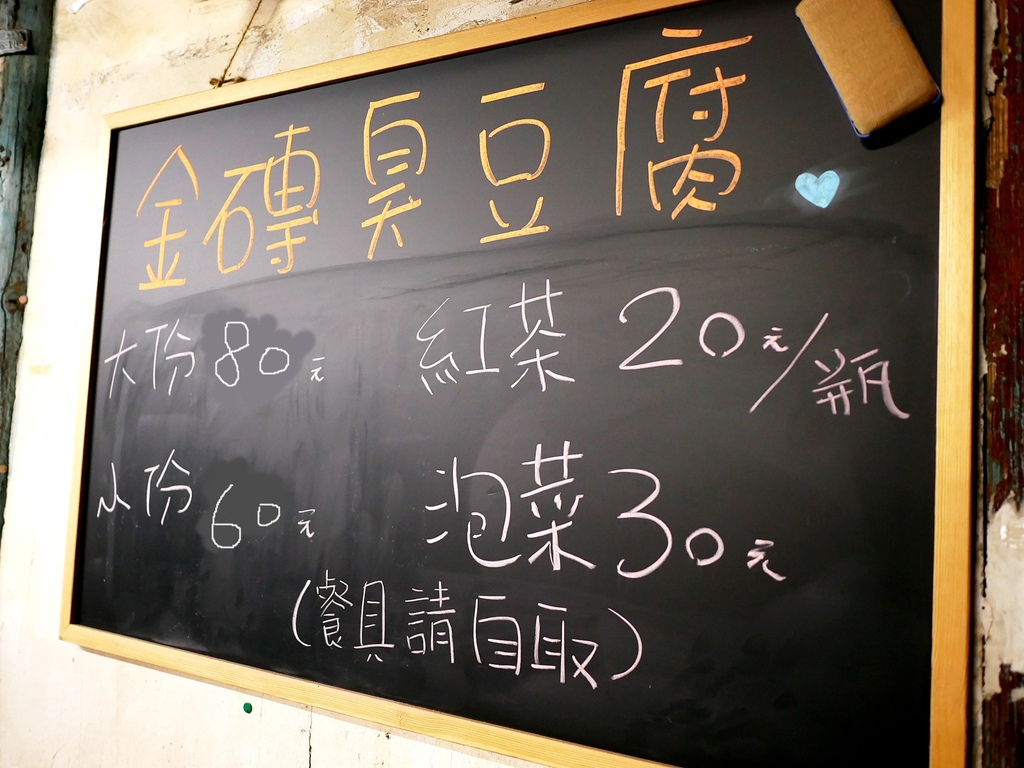 金磚臭豆腐
大份80元
紅茶20元/瓶
小份60元
泡菜30元
(餐具請自取)